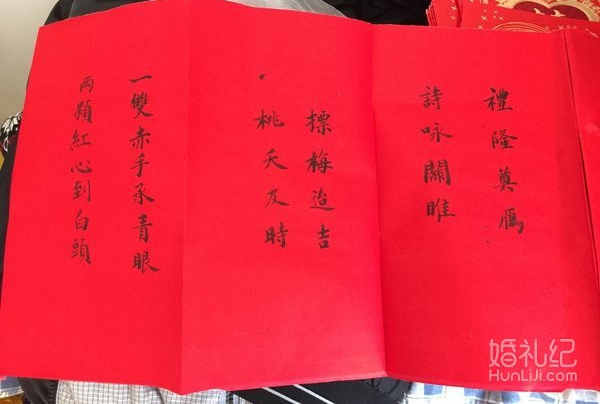 禮隆奠鴈
詩咏關睢
摽梅迨吉
桃夭及時
一雙赤手承青眼
两顆紅心到白頭
婚礼纪
HunLiJi.com